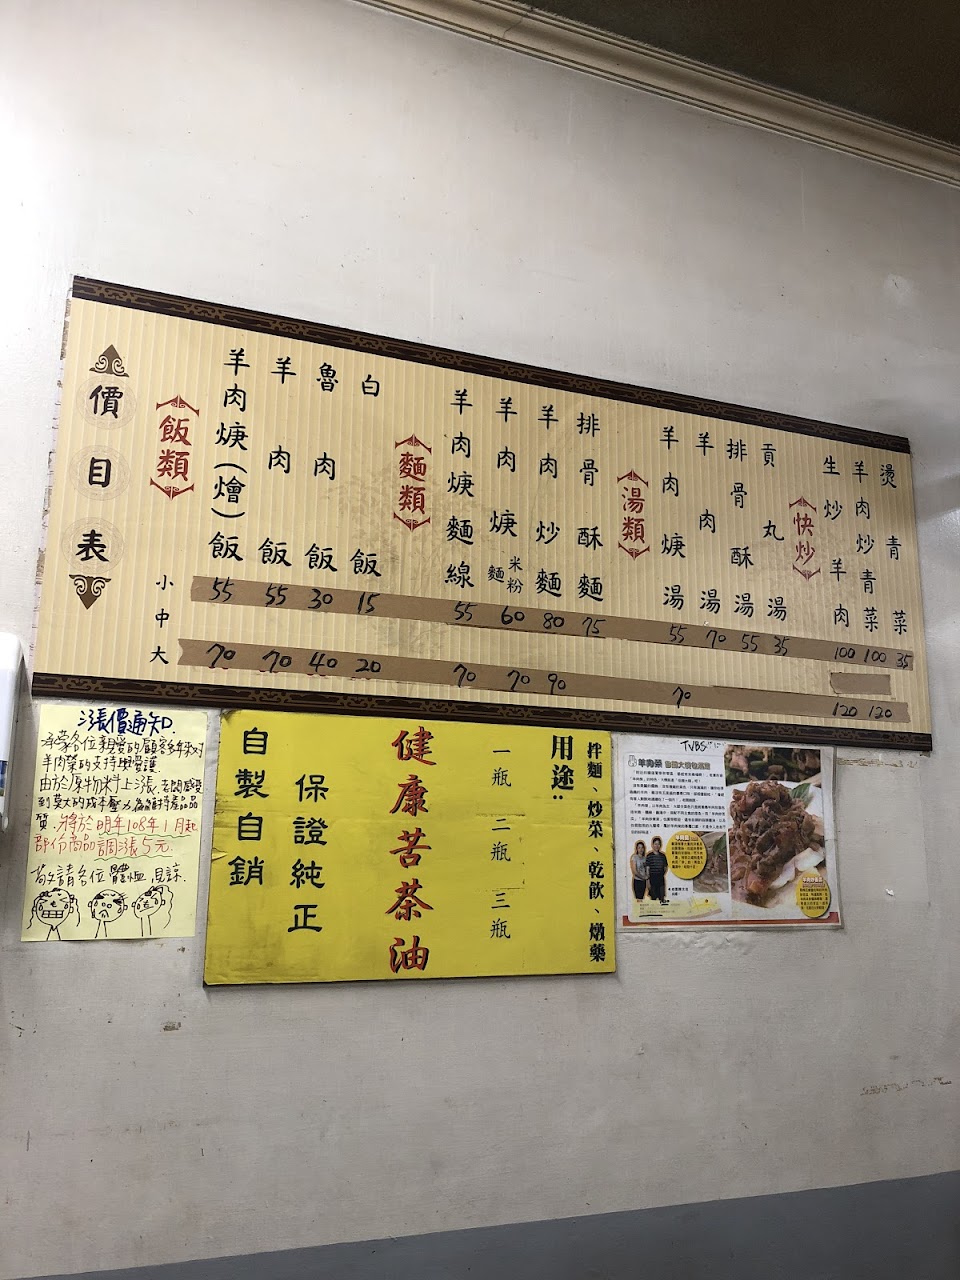 價目表
小
中
大
飯類
羊肉焿(燴)飯 55 70
羊肉飯 55 70
魯肉飯 30 40
白飯 15 20
麵類
羊肉焿麵線 55 70
羊肉焿麵米粉 60 70
羊肉炒麵 80 90
排骨酥麵 75
湯類
羊肉焿湯 55 70
羊肉湯 70
排骨酥湯 55
貢丸湯 35
快炒
生炒羊肉 100 120
羊肉炒青菜 100 120
燙青菜 35
漲價通知
承蒙各位親愛的顧客多年來對
羊肉榮的支持與愛護
由於原物料上漲,老闆感受
到莫大的成本壓力,為維持產品品
質,將於明年108年1月起
部份商品調漲5元.
敬請各位體恤見諒.
自製自銷
保證純正
健康苦茶油
一瓶 二瓶 三瓶
用途:
拌麵、炒菜、乾飲、燉藥
TVBS
羊肉榮